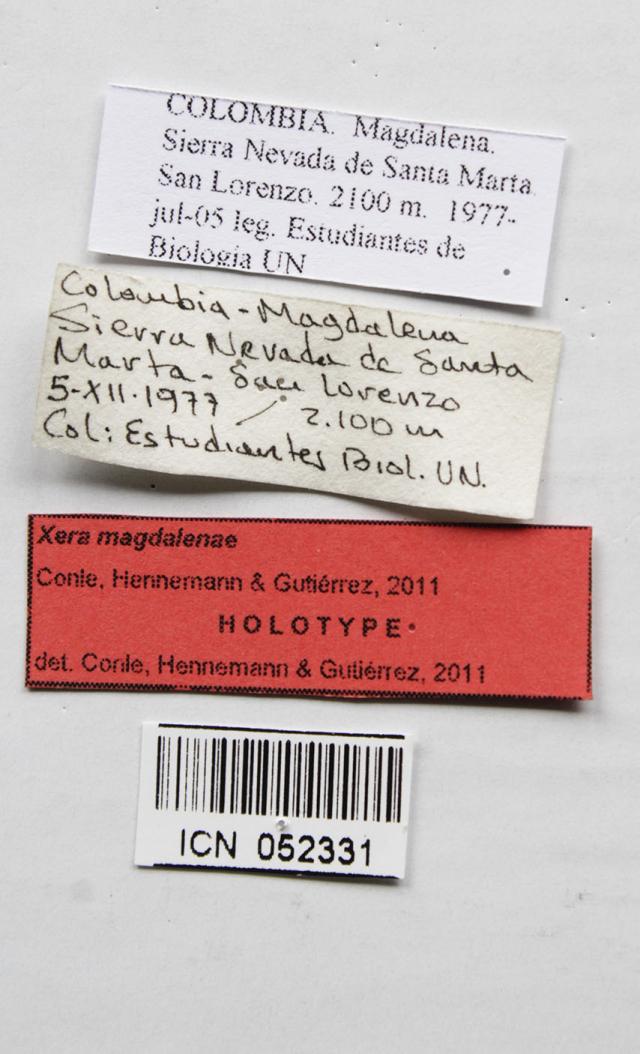 COLOMBIA. Magdalena.
Sierra Nevada de Santa Marta.
San Lorenzo. 2100 m. 1977-
jul-05 leg. Estudiantes de
Biología UN
Colombia - Magdalena
Sierra Nevada de Santa
Marta - San Lorenzo
5-XII-1977 / 2.100 m
Col: Estudiantes Biol. UN.
Xera magdalenae
Conle, Hennemann & Gutiérrez, 2011
HOLOTYPE
det. Conle, Hennemann & Gutiérrez, 2011
ICN 052331